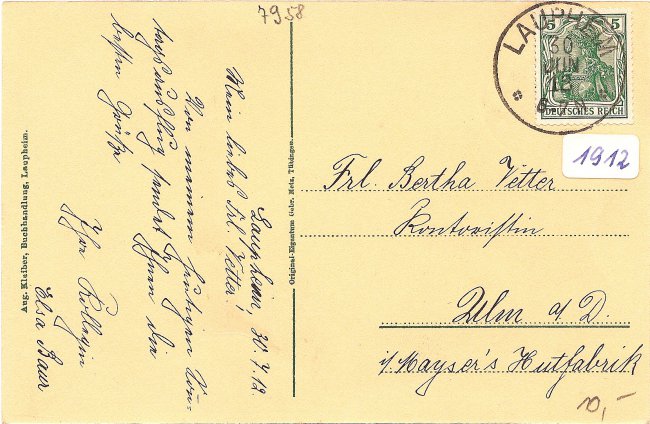 7958
Laupheim, 30.7.12.
Mein liebes Frl. Vetter.
Von meinem heutigen Sonn-
tagsausflug sendet Ihnen die
besten Grüße
Ihre Kollegin
Elsa Baur
Aug. Kleiber, Buchhandlung, Laupheim.
Original-Eigentum Gebr. Metz, Tübingen.
LAUPHEIM
30
JUN
12
6-7N
5 5
DEUTSCHES REICH
1912
Frl. Bertha Vetter
Kontoristin
Ulm a/D.
i/ Mayser's Hutfabrik
10,-